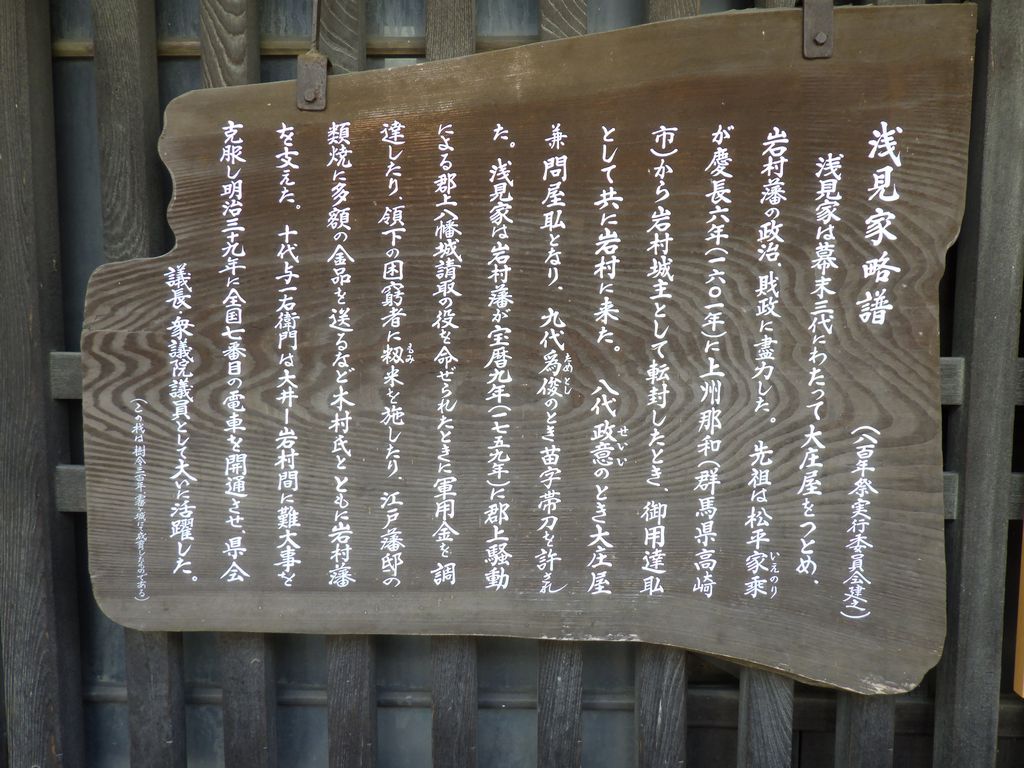 浅見家略譜
(八百年祭実行委員会建之)
浅見家は幕末三代にわたって大庄屋をつとめ、
岩村藩の政治、財政に盡力した。先祖は松平家乘
いえのり
が慶長六年(一六〇一年)に上州那和(群馬県高崎
市)から岩村城主として転封したとき、御用達耺
として共に岩村に来た。八代政意のとき大庄屋
せいい
兼問屋耺となり、九代為俊のとき苗字帯刀を許され
ためとし
た。浅見家は岩村藩が宝暦九年(一七五九年)に郡上騒動
による郡上八幡城請取の役を命ぜられたときに軍用金を調
達したり、領下の困窮者に籾米を施したり、江戸藩邸の
もみ
類焼に多額の金品を送るなど木村氏とともに岩村藩
を支えた。十代与一右衛門は大井ー岩村間に難大事を
克服し明治三九年に全国七番目の電車を開通させ、県会
議長・衆議院議員として大いに活躍した。